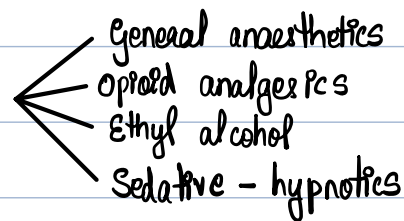 General anaesthetics
Opioid analgesics
Ethyl alcohol
Sedative - hypnotics